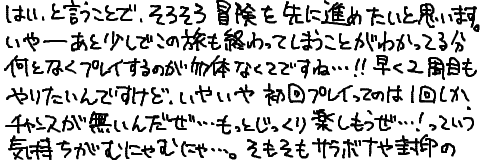 はい、と言うことで、そろそろ冒険を先に進めたいと思います。
いやーあと少しでこの旅も終わってしまうことがわかってる分
何となくプレイするのが勿体なくてですね…!!早く2周目も
やりたいんですけど、いやいや初回プレイってのは1回しか、
チャンスが無いんだぜ…もっとじっくり楽しもうぜ…!っていう
気持ちがむにゃむにゃ…。そもそもサラボナや封印の